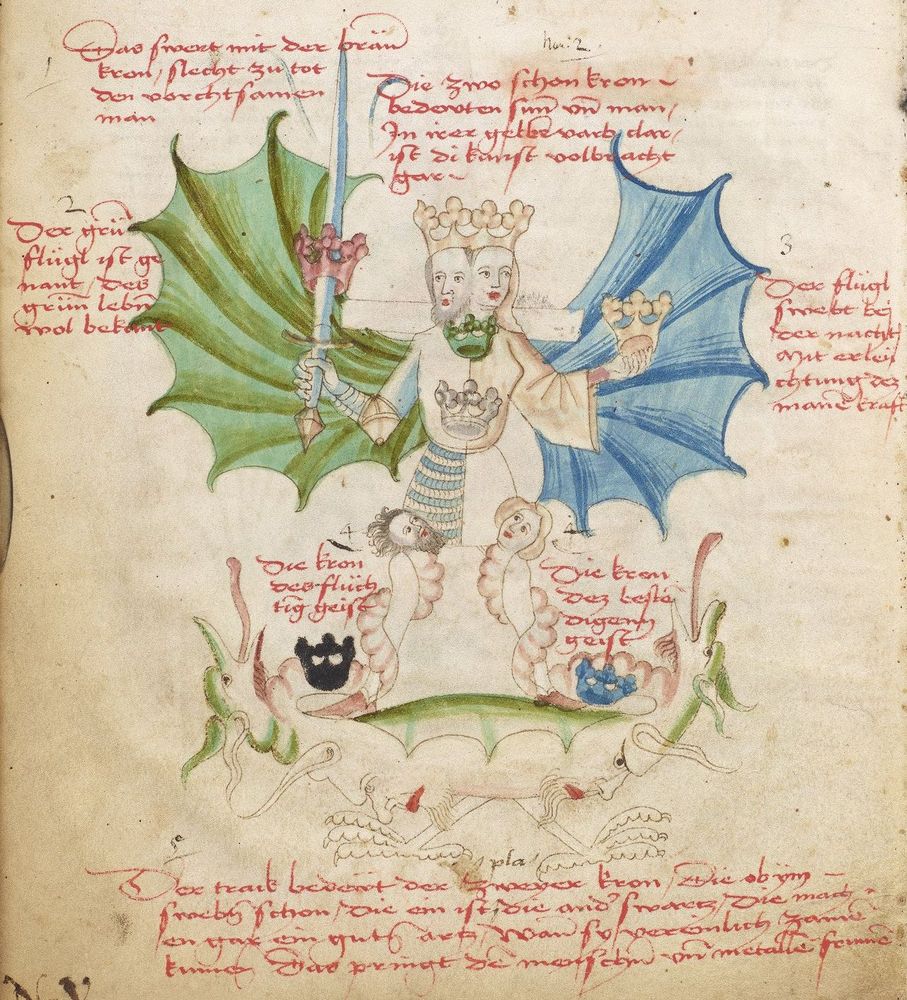 Das swert mit der bräu
kron, slecht zu tot
den vorchtsamen
man
Die zwo schon kron
bedewten sun vn̄ man,
In irer gelbe varb clar,
ist di kunst volbracht
gar
2
Der grün
flügl ist ge
nant, des
grün lebn̄
wol bekant
3
Der flügl
swebt bei
der nacht,
Mit erleu
chtung des
mane kraft
4
Die kron
des flüch
tig geist
Die kron
dez beste
digenn
geist
5
pla
Der trak bedewt der zweyer kron, Die ob ym
swebn̄ schon, Die ein ist die and swartz, Die mach
en gar ein gutn̄ artz, Wan sy vereinlich zame
kumen Das pringt de menschn̄ vn̄ metalle frumē